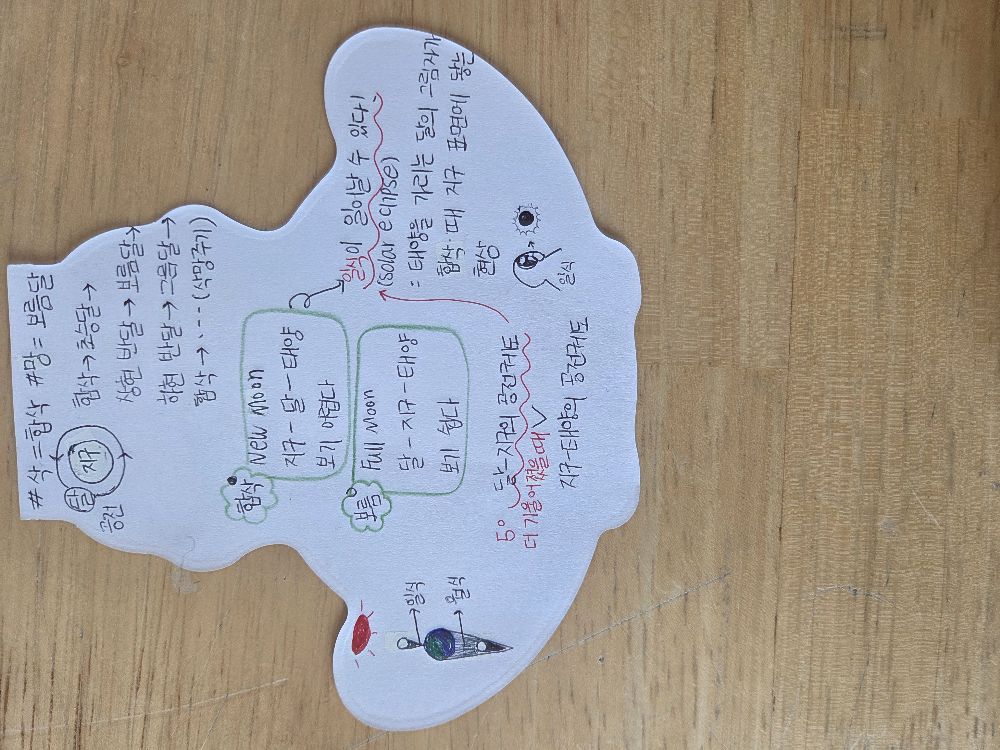 #삭=합삭 #망=보름달
달
지구
공전
합삭→초승달→
상현 반달→보름달→
하현 반달→그믐달→
합삭→····(삭망주기)
합삭
New Moon
지구-달-태양
보기 어렵다
보름
Full Moon
달-지구-태양
보기 쉽다
일식이 일어날 수 있다!
(solar eclipse)
: 태양을 가리는 달의 그림자가
합삭 때 지구 표면에 닿는
현상
일식
5° 달-지구의 공전궤도
더 기울어졌을 때
지구-태양의 공전궤도
→일식
→월식